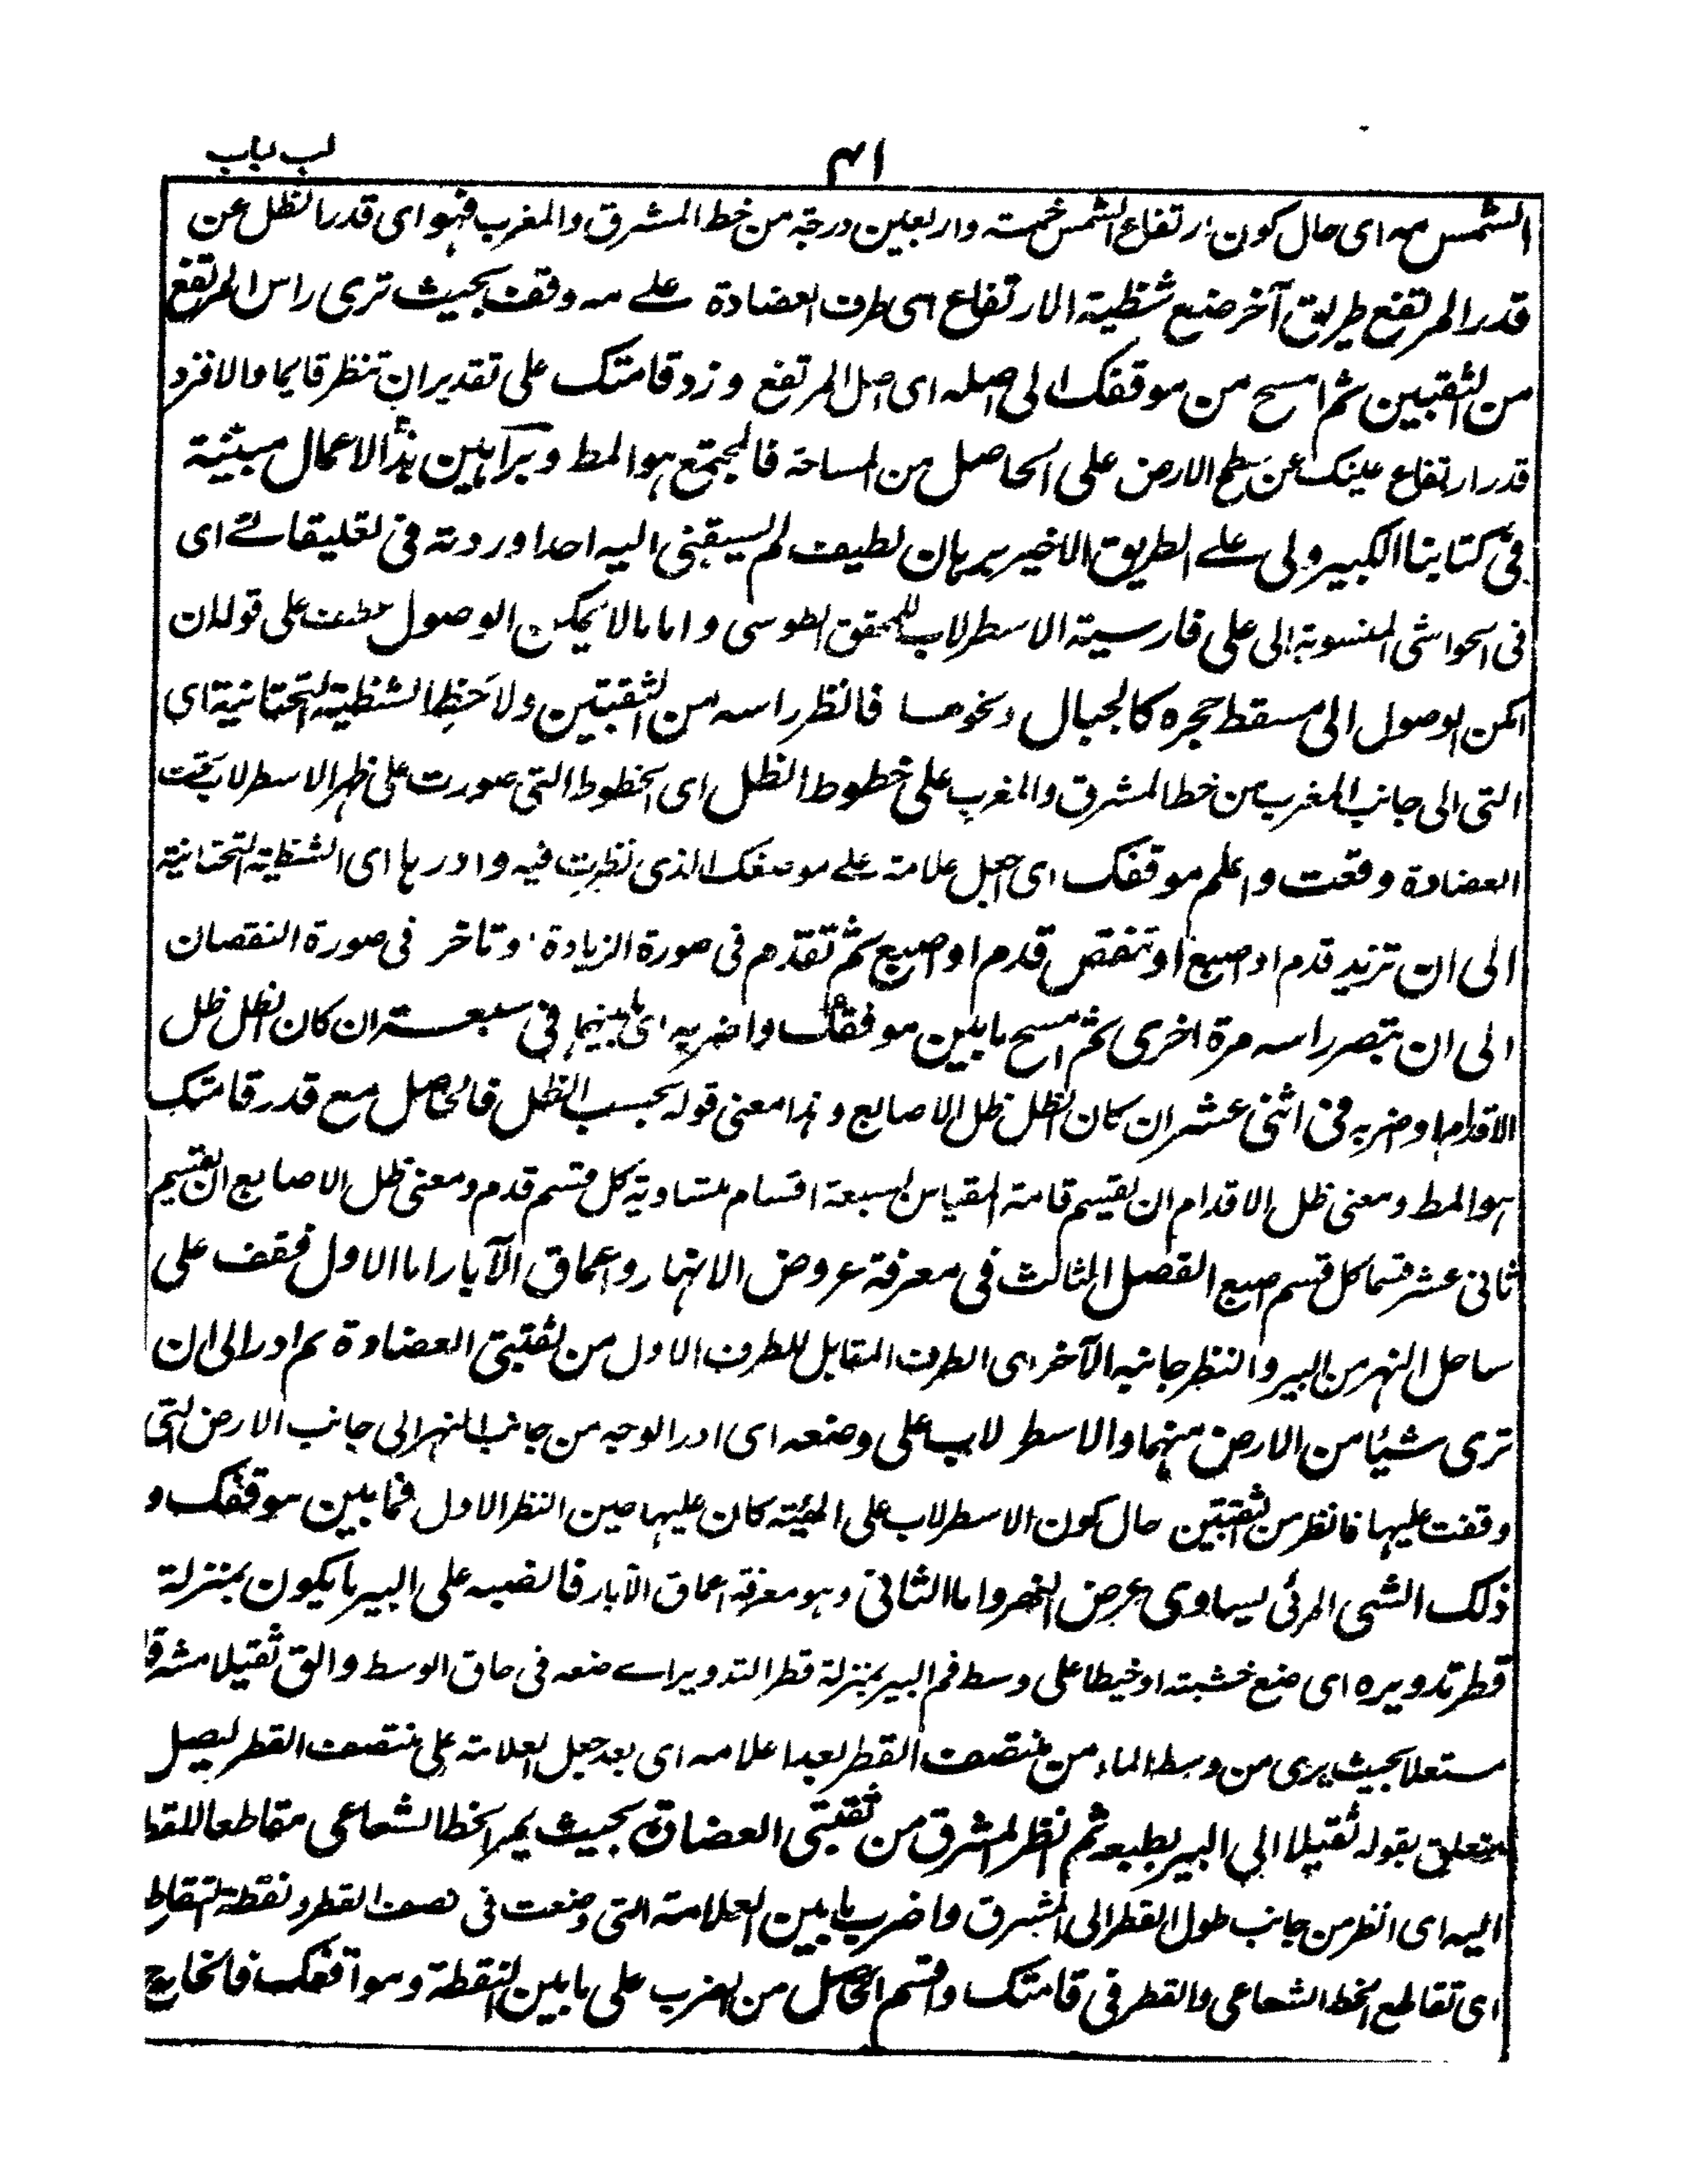 لب لباب
٤١
الشمس مه اى حال كون ارتفاع الشمس خمسة واربعين درجة من خط المشرق والمغرب فهو اى قدر الظل عن
قدر المرتفع طريق آخر ضع شظية الارتفاع اى طرف العضادة على مه وقف بحيث ترى راس المرتفع
من الثقبين ثم امسح من موقفك الى اصله اى اصل المرتفع وزد قامتك على تقدير ان تنظر قايما والا فزد
قدر ارتفاع عينك عن سطح الارض على الحاصل من المساحة فالمجتمع هو المط وبراهين هذه الاعمال مبينة
فى كتابنا الكبير ولى على الطريق الاخير برهان لطيف لم يسبقنى اليه احد اوردته فى تعليقاتى اى
فى الحواشى المنسوبة الى على فارسية الاسطرلاب للمحقق الطوسى واما ما لا يمكن الوصول عطف على قوله ان
امكن الوصول الى مسقط حجره كالجبال ونحوها فانظر راسه من الثقبتين ولاحظ الشظية التحتانية اى
التى الى جانب المغرب من خط المشرق والمغرب على خطوط الظل اى الخطوط التى صورت على ظهر الاسطرلاب تحت
العضادة وقعت واعلم موقفك اى اجعل علامة على موقفك الذى نظرت فيه وادرها اى الشظية التحتانية
الى ان تزيد قدم او اصبع او تنقص قدم او اصبع ثم تقدم فى صورة الزيادة وتاخر فى صورة النقصان
الى ان تبصر راسه مرة اخرى ثم امسح ما بين موقفيك واضربه اى ما بينهما فى سبعة ان كان الظل ظل
الاقدام او ضربه فى اثنى عشر ان كان الظل ظل الاصابع وهذا معنى قوله بحسب الظل فالحاصل مع قدر قامتك
هو المط ومعنى ظل الاقدام ان يقسم قامة المقياس بسبعة اقسام متساوية كل قسم قدم ومعنى ظل الاصابع ان يقسيم
ثانى عشر قسما كل قسم اصبع الفصل الثالث فى معرفة عروض الانهار واعماق الآبار اما الاول فقف على
ساحل النهر من البير وانظر جانبه الآخر اى الطرف المقابل للطرف الاول من ثقبتى العضادة ثم ادر الى ان
ترى شيئا من الارض منهما والاسطرلاب على وضعه اى ادر الوجه من جانب النهر الى جانب الارض التى
وقفت عليها فانظر من ثقبتين حال كون الاسطرلاب على الهيئة كان عليها حين النظر الاول فما بين موقفك و
ذلك الشى المرئى يساوى عرض النهر واما الثانى وهو معرفة اعماق الآبار فانصبه على البير ما يكون بمنزلة
قطر تدويره اى ضع خشبة او خيطا على وسط فم البير بمنزلة قطر التدوير اى ضعه فى حاق الوسط والق ثقيلا مشرقا
مستعلا بحيث يرى من وسط الماء من منتصف القطر بعد اعلامه اى بعد جعل العلامة على منتصف القطر ليصل
متعلق بقوله ثقيلا الى البير بطبعه ثم انظر المشرق من ثقبتى العضادة بحيث يمر الخط الشعاعى مقاطعا للقط
اليه اى انظر من جانب طول القطر الى المشرق واضرب ما بين العلامة التى وضعت فى نصف القطر ونقطة التقاطع
اى تقاطع الخط الشعاعى والقطر فى قامتك واقسم الحاصل من الضرب على ما بين النقطة وموقفك فالخارج